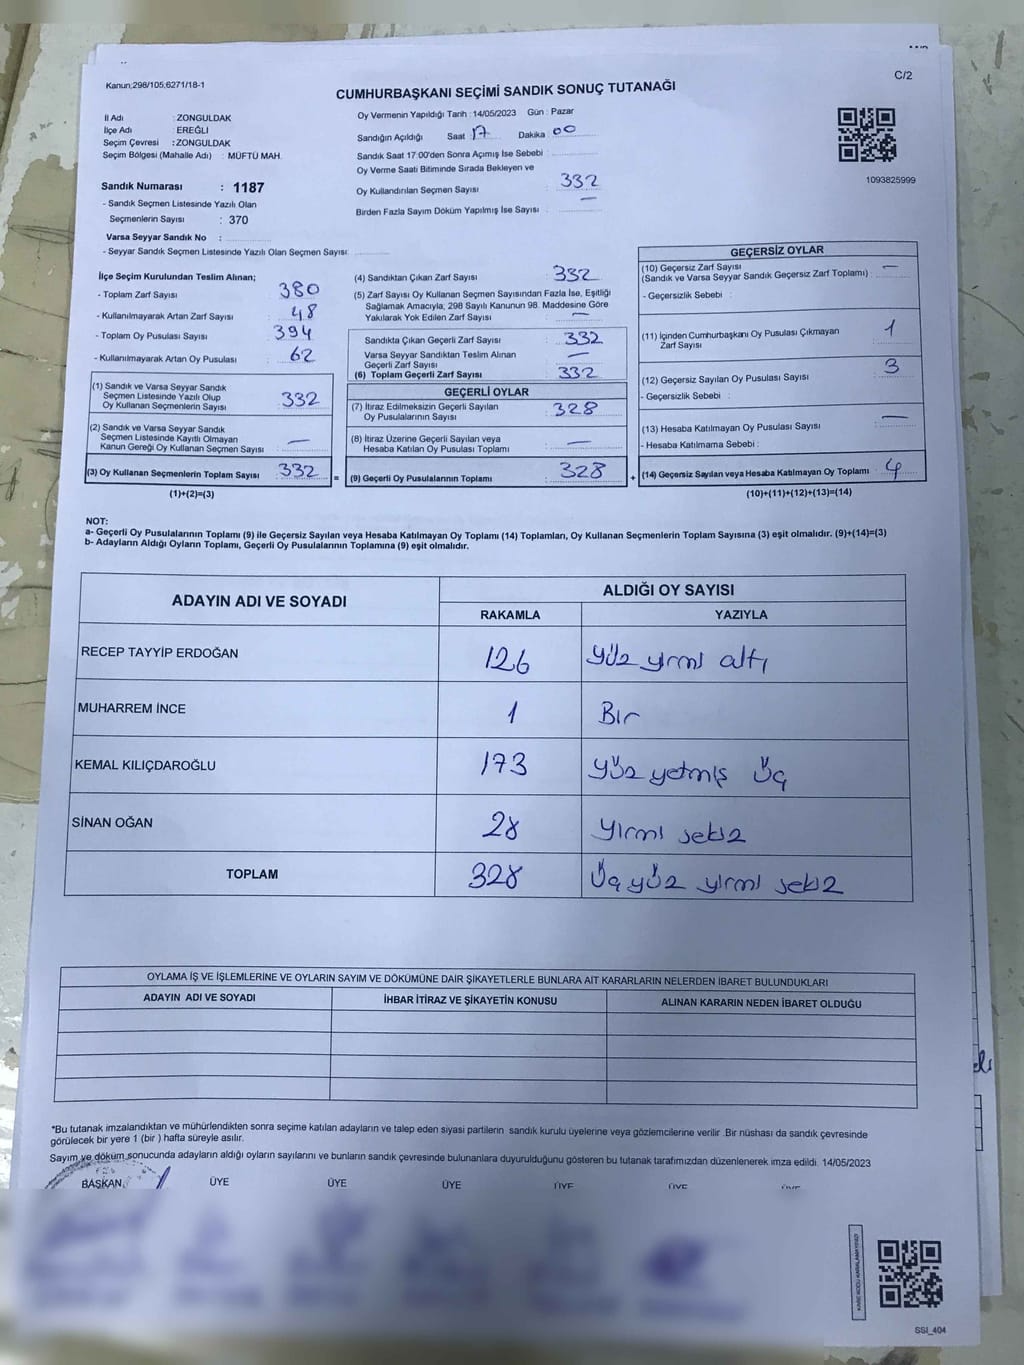 Kanun;298/105;6271/18-1
C/2
CUMHURBAŞKANI SEÇİMİ SANDIK SONUÇ TUTANAĞI
İl Adı : ZONGULDAK
İlçe Adı : EREĞLİ
Seçim Çevresi : ZONGULDAK
Seçim Bölgesi (Mahalle Adı) : MÜFTÜ MAH.
Sandık Numarası : 1187
- Sandık Seçmen Listesinde Yazılı Olan
Seçmenlerin Sayısı : 370
Varsa Seyyar Sandık No :
- Seyyar Sandık Seçmen Listesinde Yazılı Olan Seçmen Sayısı:
Oy Vermenin Yapıldığı Tarih : 14/05/2023 Gün : Pazar
Sandığın Açıldığı Saat 17 Dakika 00
Sandık Saat 17:00'den Sonra Açımış İse Sebebi :
Oy Verme Saati Bitiminde Sırada Bekleyen ve
Oy Kullandırılan Seçmen Sayısı : 332
Birden Fazla Sayım Döküm Yapılmış İse Sayısı : —
1093825999
İlçe Seçim Kurulundan Teslim Alınan;
- Toplam Zarf Sayısı : 380
- Kullanılmayarak Artan Zarf Sayısı : 48
- Toplam Oy Pusulası Sayısı : 394
- Kullanılmayarak Artan Oy Pusulası : 62
(1) Sandık ve Varsa Seyyar Sandık
Seçmen Listesinde Yazılı Olup
Oy Kullanan Seçmenlerin Sayısı : 332
(2) Sandık ve Varsa Seyyar Sandık
Seçmen Listesinde Kayıtlı Olmayan
Kanun Gereği Oy Kullanan Seçmen Sayısı : —
(3) Oy Kullanan Seçmenlerin Toplam Sayısı : 332 =
(1)+(2)=(3)
(4) Sandıktan Çıkan Zarf Sayısı : 332
(5) Zarf Sayısı Oy Kullanan Seçmen Sayısından Fazla İse, Eşitliği
Sağlamak Amacıyla; 298 Sayılı Kanunun 98. Maddesine Göre
Yakılarak Yok Edilen Zarf Sayısı : —
Sandıkta Çıkan Geçerli Zarf Sayısı : 332
Varsa Seyyar Sandıktan Teslim Alınan
Geçerli Zarf Sayısı : —
(6) Toplam Geçerli Zarf Sayısı : 332
GEÇERLİ OYLAR
(7) İtiraz Edilmeksizin Geçerli Sayılan
Oy Pusulalarının Sayısı : 328
(8) İtiraz Üzerine Geçerli Sayılan veya
Hesaba Katılan Oy Pusulası Toplamı : —
(9) Geçerli Oy Pusulalarının Toplamı : 328 +
GEÇERSİZ OYLAR
(10) Geçersiz Zarf Sayısı
(Sandık ve Varsa Seyyar Sandık Geçersiz Zarf Toplamı) : —
- Geçersizlik Sebebi :
(11) İçinden Cumhurbaşkanı Oy Pusulası Çıkmayan
Zarf Sayısı : 1
(12) Geçersiz Sayılan Oy Pusulası Sayısı : 3
- Geçersizlik Sebebi :
(13) Hesaba Katılmayan Oy Pusulası Sayısı : —
- Hesaba Katılmama Sebebi :
(14) Geçersiz Sayılan veya Hesaba Katılmayan Oy Toplamı : 4
(10)+(11)+(12)+(13)=(14)
NOT:
a- Geçerli Oy Pusulalarının Toplamı (9) ile Geçersiz Sayılan veya Hesaba Katılmayan Oy Toplamı (14) Toplamları, Oy Kullanan Seçmenlerin Toplam Sayısına (3) eşit olmalıdır. (9)+(14)=(3)
b- Adayların Aldığı Oyların Toplamı, Geçerli Oy Pusulalarının Toplamına (9) eşit olmalıdır.
ADAYIN ADI VE SOYADI ALDIĞI OY SAYISI
RAKAMLA YAZIYLA
RECEP TAYYİP ERDOĞAN 126 Yüz yirmi altı
MUHARREM İNCE 1 Bir
KEMAL KILIÇDAROĞLU 173 Yüz yetmiş üç
SİNAN OĞAN 28 Yirmi sekiz
TOPLAM 328 Üç yüz yirmi sekiz
OYLAMA İŞ VE İŞLEMLERİNE VE OYLARIN SAYIM VE DÖKÜMÜNE DAİR ŞİKAYETLERLE BUNLARA AİT KARARLARIN NELERDEN İBARET BULUNDUKLARI
ADAYIN ADI VE SOYADI İHBAR İTİRAZ VE ŞİKAYETİN KONUSU ALINAN KARARIN NEDEN İBARET OLDUĞU
*Bu tutanak imzalandıktan ve mühürlendikten sonra seçime katılan adayların ve talep eden siyasi partilerin sandık kurulu üyelerine veya gözlemcilerine verilir .Bir nüshası da sandık çevresinde
görülecek bir yere 1 (bir ) hafta süreyle asılır.
Sayım ve döküm sonucunda adayların aldığı oyların sayılarını ve bunların sandık çevresinde bulunanlara duyurulduğunu gösteren bu tutanak tarafımızdan düzenlenerek imza edildi. 14/05/2023
BAŞKAN ÜYE ÜYE ÜYE ÜYE ÜYE ÜYE
SSI_404